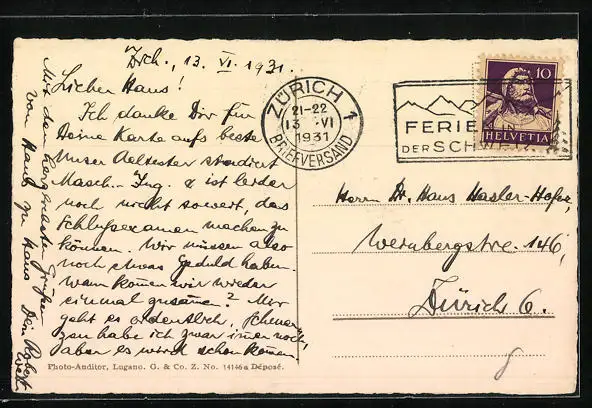 Zrch., 13. VI. 1931.
Lieber Hans!
Ich danke Dir für
Deine Karte aufs beste
Unser Aeltester studiert
Masch.-Ing. & ist leider
noch nicht soweit, das
Schlussexamen machen zu
können. Wir müssen also
noch etwas Geduld haben.
Wann komen wir wieder
einmal zusame? Mir
geht es ordentlich, Schmer-
zen habe ich zwar imer noch,
aber es wird schon kommen
Mit den herzlichsten Grüßen
von Haus zu Haus Dein
ZÜRICH 1
21-22
13. VI
1931
BRIEFVERSAND
FERIEN IN
DER SCHWEIZ
10
HELVETIA
Herrn Dr. Hans Hasler-
bergstre. 146,
Zürich 6.
Photo-Auditor, Lugano. G. & Co. Z. No. 14146a Déposé.